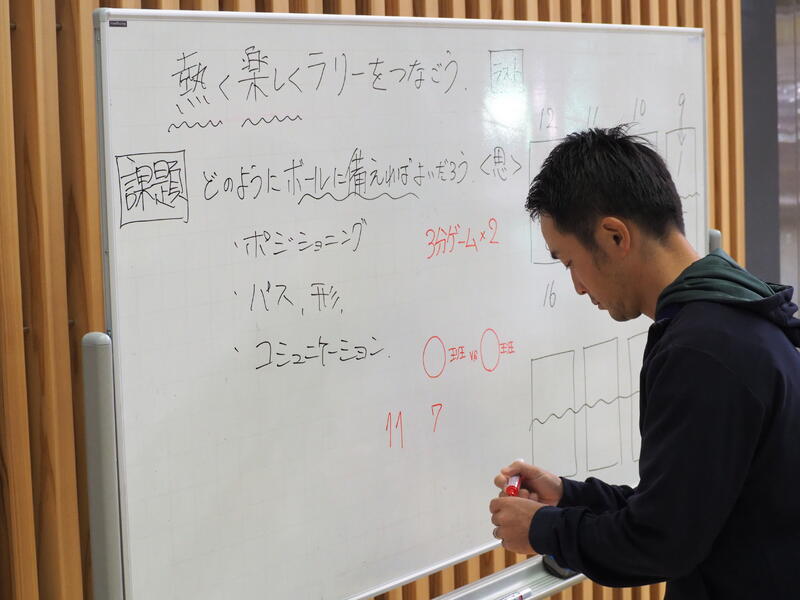 熱く楽しくラリーをつなごう.
ラスト
課題 どのようにボールに備えればよいだろう.<思>
・ポジショニング
3分ゲーム×2
・パス,形,
・コミュニケーション.
〇班 vs 〇班
11 7
12 11 10 9
16